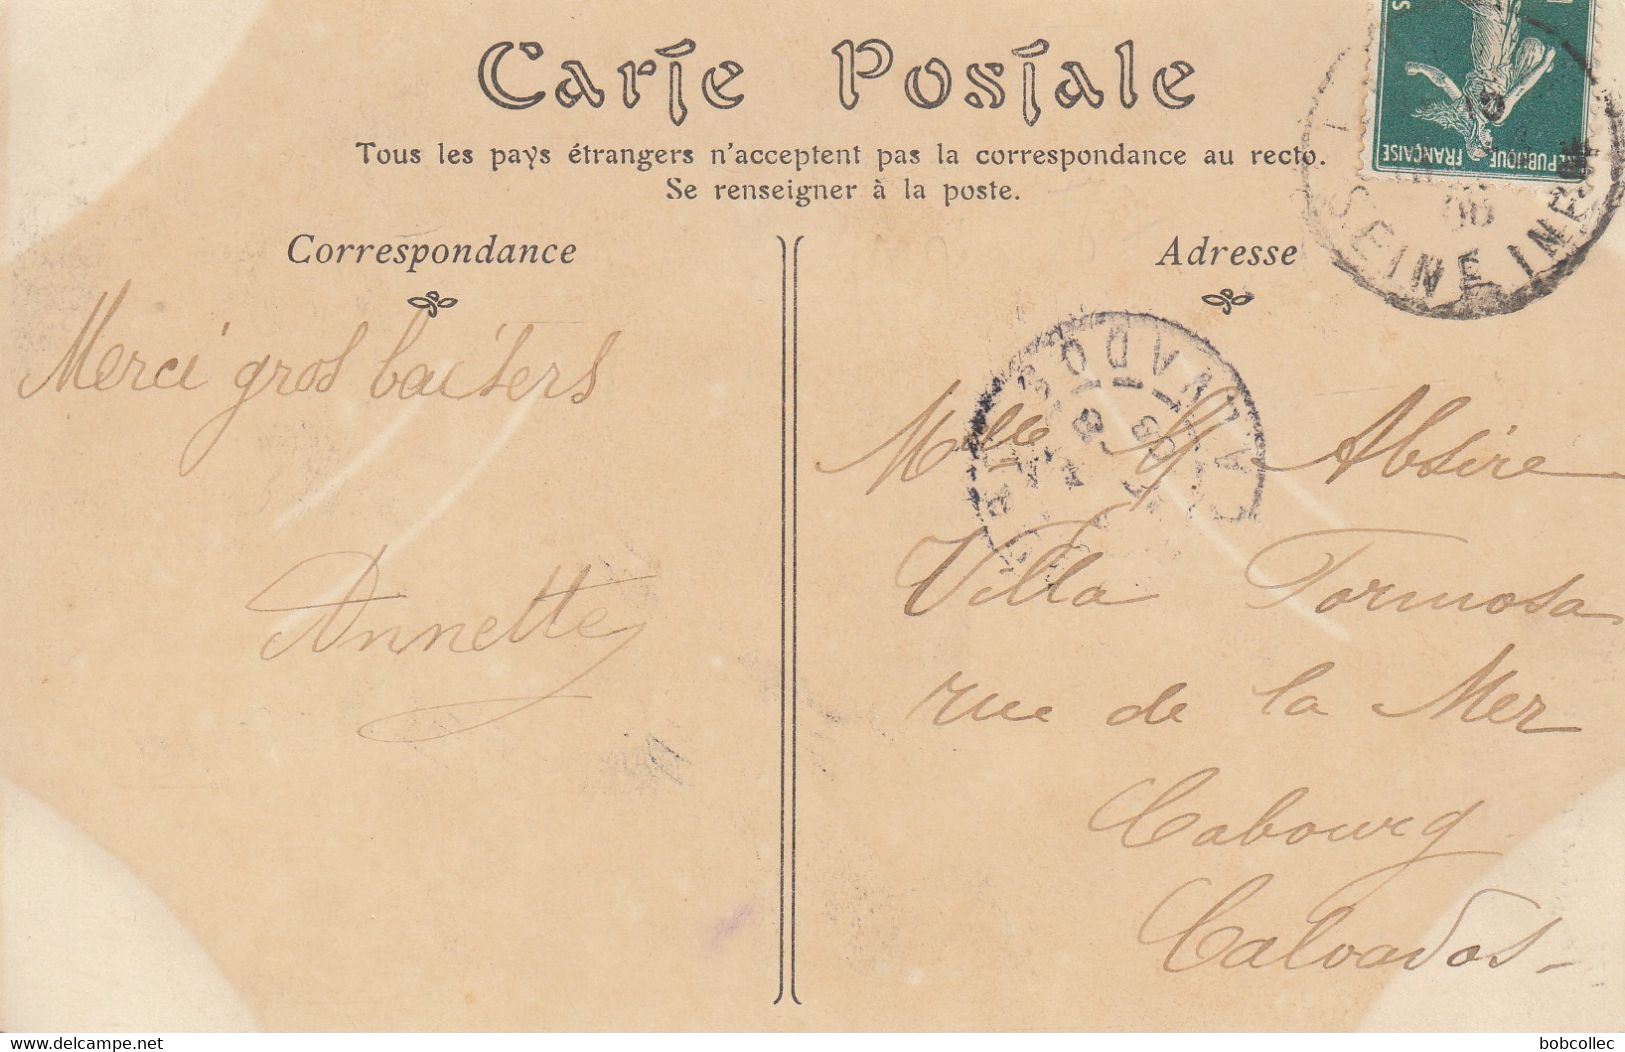 Carte Postale
Tous les pays étrangers n'acceptent pas la correspondance au recto.
Se renseigner à la poste.
Correspondance
Adresse
RÉPUBLIQUE FRANÇAISE
SEINE INFRE
08
CALVADOS
Merci gros baisers
Annette
Melle Y Absire
Villa Formosa
rue de la Mer
Cabourg
Calvados
www.delcampe.net
bobcollec